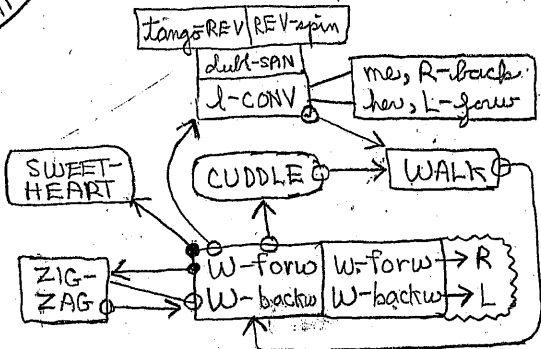 tango-REV REV-spin
dubl-SAN
l-CONV
me, R-back
her, L-forw
SWEET-
HEART
CUDDLE
WALK
ZIG-
ZAG
W-forw W-forw R
W-backw W-backw L